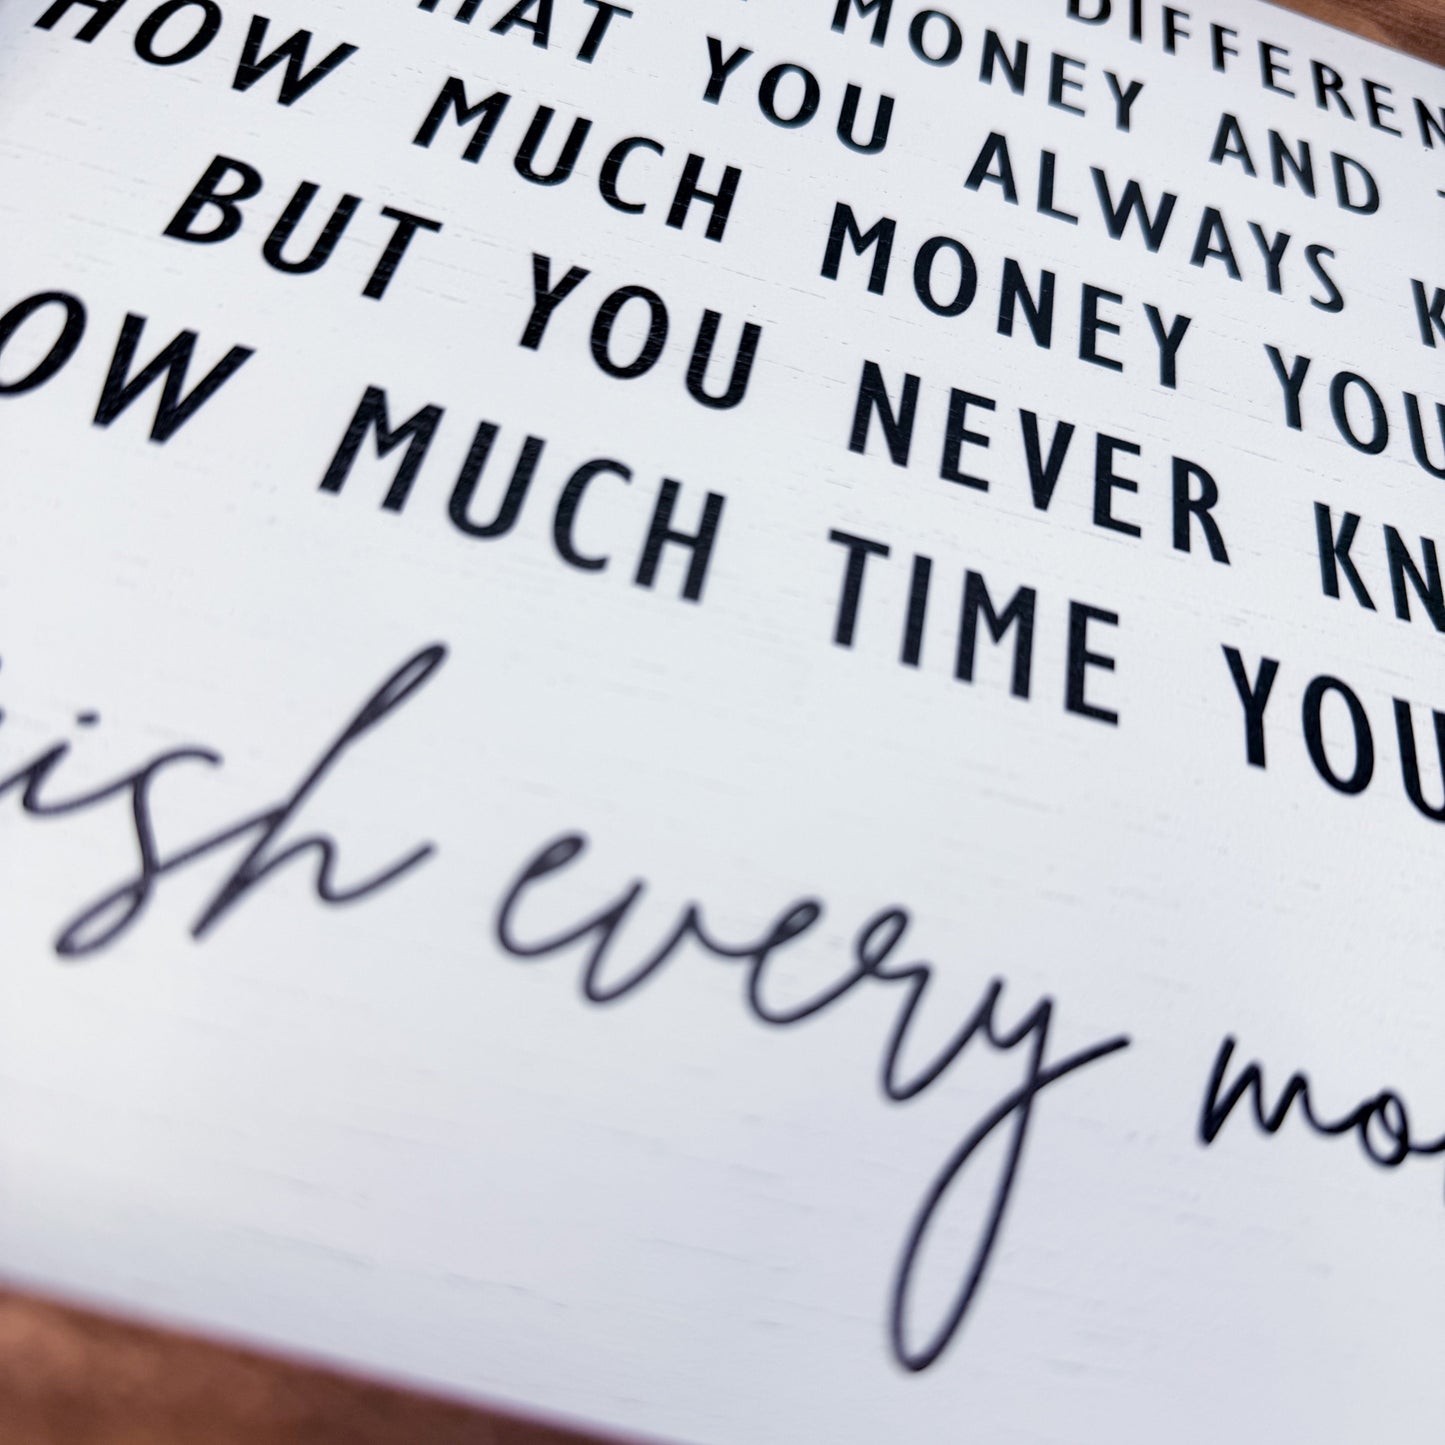 DIFFEREN
MONEY AND
HAT YOU ALWAYS K
HOW MUCH MONEY YOU
BUT YOU NEVER KN
OW MUCH TIME YOU
ish every mo